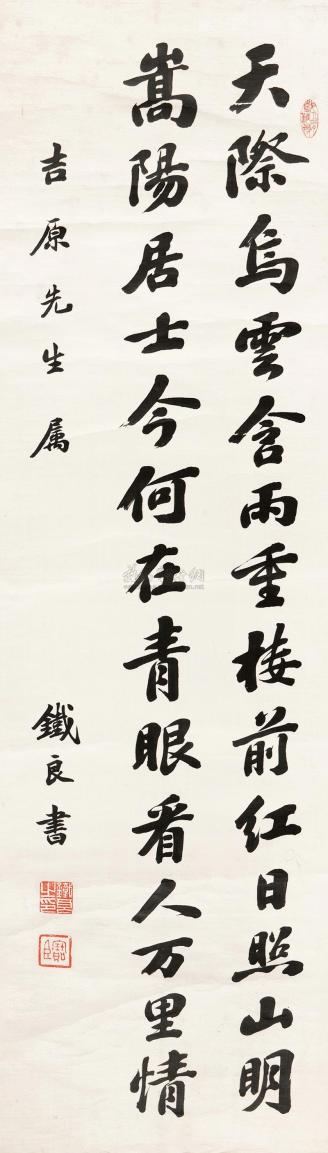 天際烏雲含雨重楼前红日照山明
嵩陽居士今何在青眼看人万里情
吉原先生属
鐵良書
鐵良之印